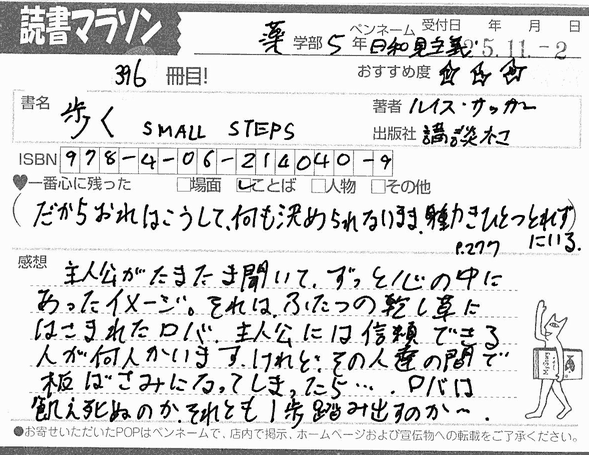 読書マラソン
ペンネーム 受付日 年 月 日
薬学部5年 日和見主義 '25.11.-2
396冊目! おすすめ度 ☆☆☆
書名 歩く SMALL STEPS
著者 ルイス・サッカー
出版社 講談社
ISBN 978-4-06-214040-9
♥一番心に残った □場面 ☑ことば □人物 □その他
(だからおれはこうして、何も決められないまま、身動きひとつとれず)
にいる。
P.277
感想 主人公がたまたま聞いて、ずっと心の中に
あったイメージ。それは、ふたつの乾し草に
はさまれたロバ。主人公には信頼できる
人が何人かいます。けれど、その人達の間で
板ばさみになってしまったら…。ロバは
飢え死ぬのか、それとも1歩踏み出すのか〜。
●お寄せいただいたPOPはペンネームで、店内で掲示、ホームページおよび宣伝物への転載をご了承ください。